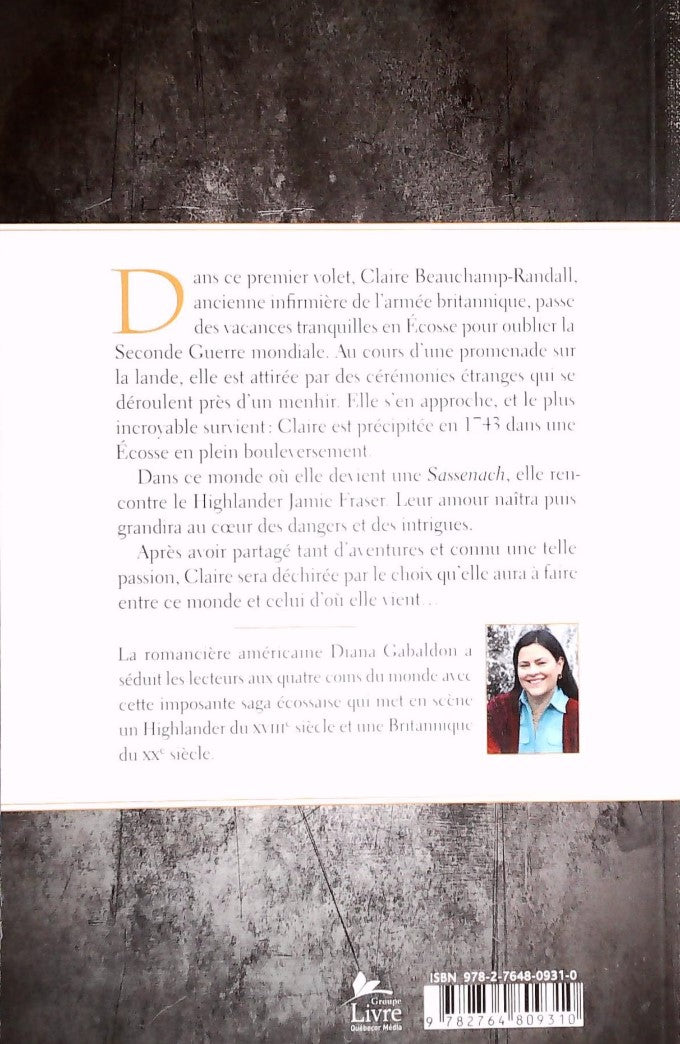 Dans ce premier volet, Claire Beauchamp-Randall,
ancienne infirmière de l'armée britannique, passe
des vacances tranquilles en Écosse pour oublier la
Seconde Guerre mondiale. Au cours d'une promenade sur
la lande, elle est attirée par des cérémonies étranges qui se
déroulent près d'un menhir. Elle s'en approche, et le plus
incroyable survient : Claire est précipitée en 1743 dans une
Écosse en plein bouleversement.
Dans ce monde où elle devient une Sassenach, elle ren-
contre le Highlander Jamie Fraser. Leur amour naîtra puis
grandira au cœur des dangers et des intrigues.
Après avoir partagé tant d'aventures et connu une telle
passion, Claire sera déchirée par le choix qu'elle aura à faire
entre ce monde et celui d'où elle vient…
La romancière américaine Diana Gabaldon a
séduit les lecteurs aux quatre coins du monde avec
cette imposante saga écossaise qui met en scène
un Highlander du XVIIIe siècle et une Britannique
du XXe siècle.
ISBN 978-2-7648-0931-0
9 782764 809310
Groupe
Livre
Québecor Média